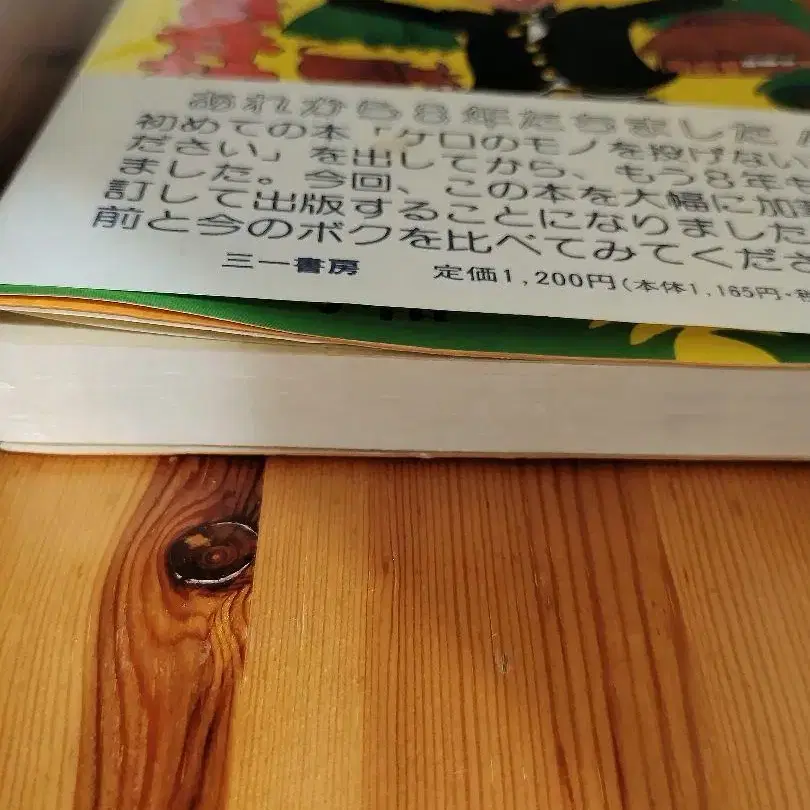 あれから8年たちました
初めての本「ケロのモノを投げない
ださい」を出してから、もう8年も
ました。今回、この本を大幅に加
訂して出版することになりました
前と今のボクを比べてみてくださ
三一書房 定価1,200円(本体1,165円・税